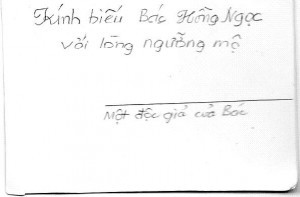 Kính biếu Bác Hồng Ngọc
với lòng ngưỡng mộ
Một độc giả của Bác